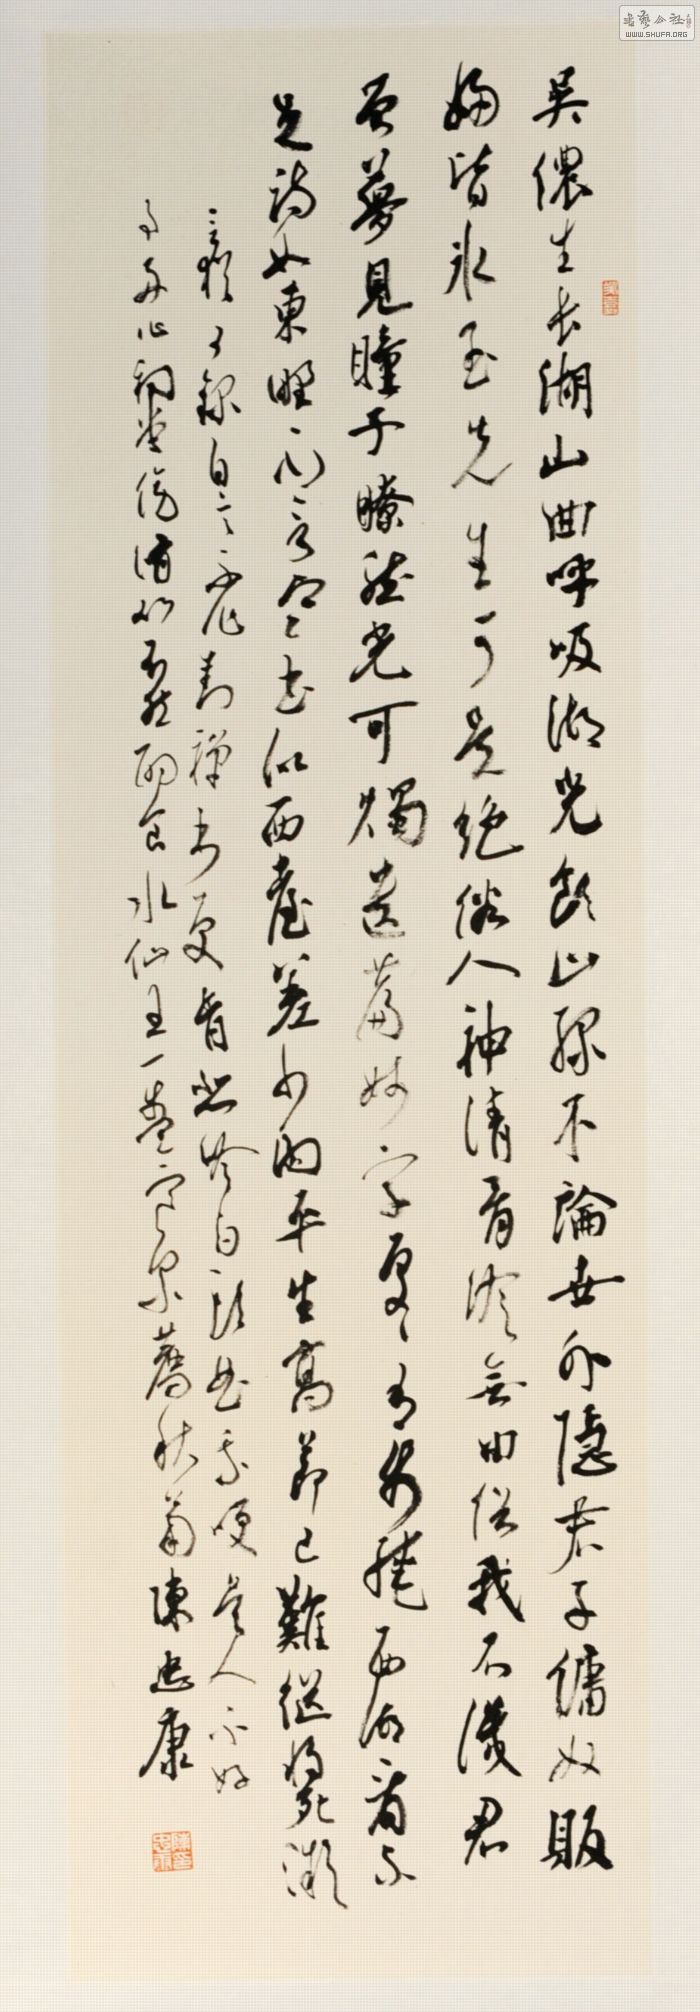 吳儂生長湖山曲呼吸湖光飲山淥不論世外隱君子傭奴販
婦皆冰玉先生可是絕俗人神清骨冷無由俗我不識君
曾夢見瞳子瞭然光可燭遺篇妙字處〻有步繞西湖看不
足詩如東野不言寒書似西臺差少肉平生高節已難繼將死微
言猶可錄自言不作封禪書更肯悲吟白頭曲我笑吳人不好
事好作祠堂傍修竹不然配食水仙王一盞寒泉薦秋菊陳忠康
陳忠康印
WWW.SHUFA.ORG